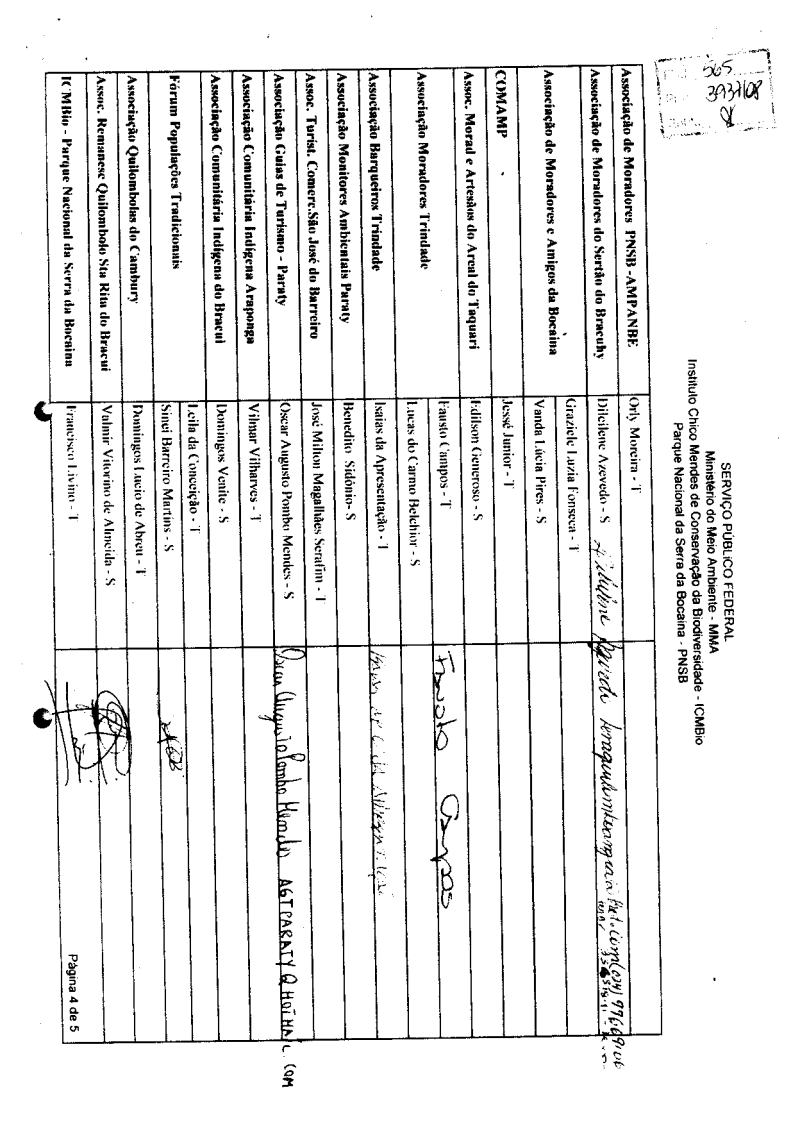 565
3937/08
SERVIÇO PÚBLICO FEDERAL
Ministério do Meio Ambiente - MMA
Instituto Chico Mendes de Conservação da Biodiversidade - ICMBio
Parque Nacional da Serra da Bocaina - PNSB
Associação de Moradores PNSB -AMPANBE Orly Moreira - T
Associação de Moradores do Sertão do Bracuhy Dilcilene Azevedo - S
Associação de Moradores e Amigos da Bocaina Graziele Luzia Fonseca - T
Vanda Lúcia Pires - S
COMAMP Jessé Junior - T
Assoc. Morad e Artesãos do Areal do Taquari Edilson Generoso - S
Associação Moradores Trindade Fausto Campos - T Fausto Campos
Lucas do Carmo Belchior - S
Associação Barqueiros Trindade Isaias da Apresentação - T
Associação Monitores Ambientais Paraty Benedito Sidônio- S
Assoc. Turist. Comerc.São José do Barreiro José Milton Magalhães Serafim - T
Associação Guias de Turismo - Paraty Oscar Augusto Pombo Mendes - S Oscar Augusto Pombo Mendes AGTPARATY@HOTMAIL.COM
Associação Comunitária Indígena Araponga Vilmar Vilharves - T
Associação Comunitária Indígena do Bracuí Domingos Venite - S
Fórum Populações Tradicionais Leila da Conceição - T
Sinei Barreiro Martins - S
Associação Quilombolas do Cambury Domingos Lucio de Abreu - T
Assoc. Remanesc Quilombolo Sta Rita do Bracuí Valmir Vitorino de Almeida - S
ICMBio - Parque Nacional da Serra da Bocaina Francisco Livino - T
Página 4 de 5